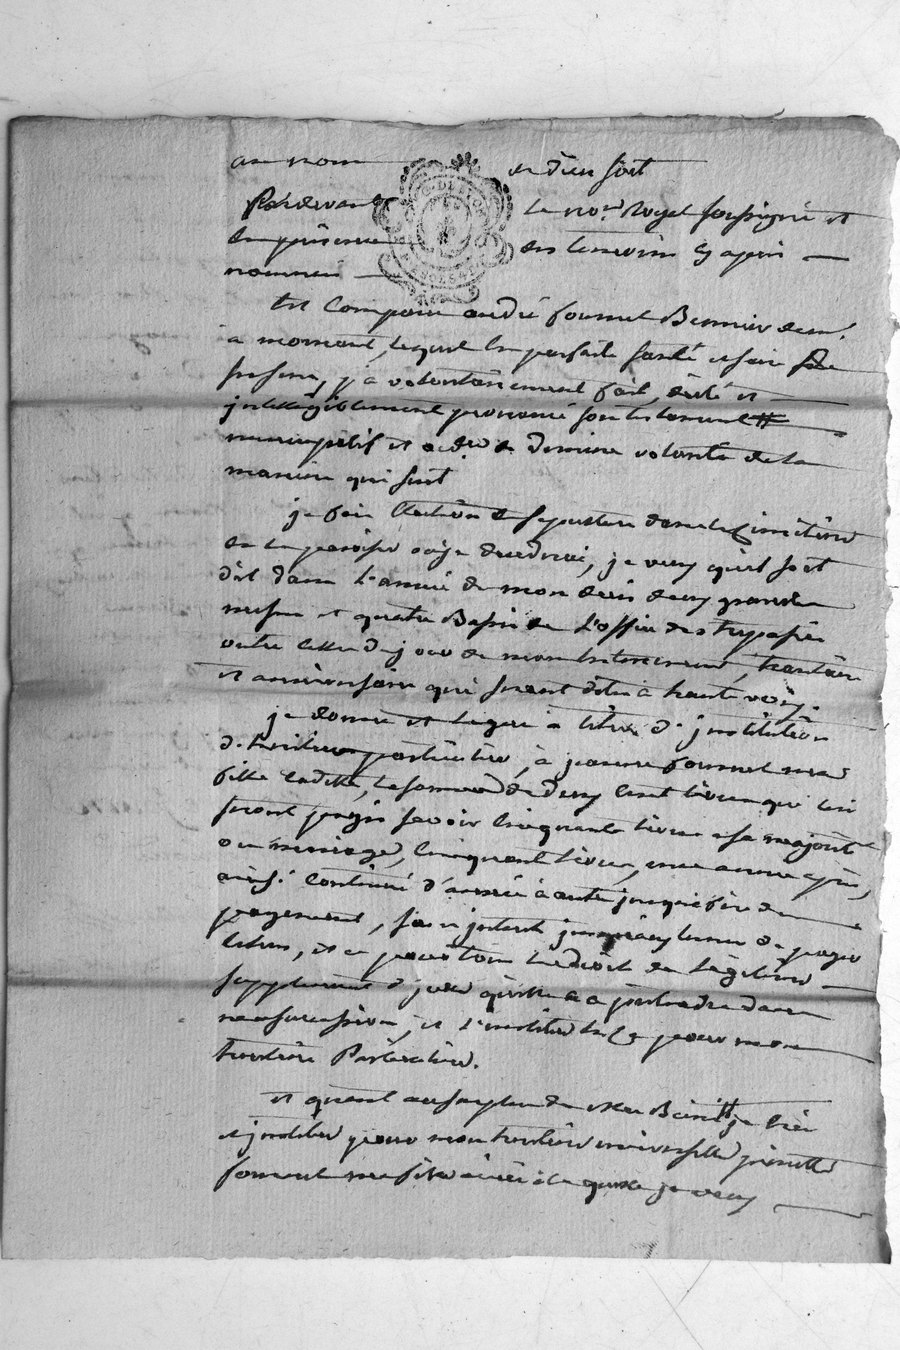 au nom de dieu soit
Pardevant le no.re Royal soussigné et
en presence des temoins cy apres
nommés
Est Comparu andré fournet
a moment, lequel en parfaite santé
presence, j'a volontairement fait, dicté et
jntelligiblement prononcé son testament
nuncupatif et ord.re de derniere volonté de la
maniere qui suit
je fais Election de sepulture dans le Cimetiere
de la paroisse, je veux qu'il soit
dit dans l'année de mon deces deux grandes
messes et quatre Basses de L'office des trepassés
outre celle du jour de mon Enterrement,
et anniversaire qui seront dites a haute voix.
je donne et legue a titre d'jnstitution
d'heritiere particuliere, à jeanne fournet ma
fille Cadette, la somme de Deux Cent livres qui lui
seront payés savoir Cinquante livres a sa majorité
ou mariage, Cinquante livres, une année après,
ainsi Continué d'année à autre jusqu'a fin de
payement, sans jnteret jusques aux termes de payer
Echus, et ce pour tous les droits de legitime
supplement d'jcelle qu'elle a a pretendre dans
ma succession, et l'institue pour mon
heritiere Particuliere.
et quant au surplus de mes Biens je fais
et jnstitue pour mon heritiere universelle
fournet ma fille ainée a la quelle je veux